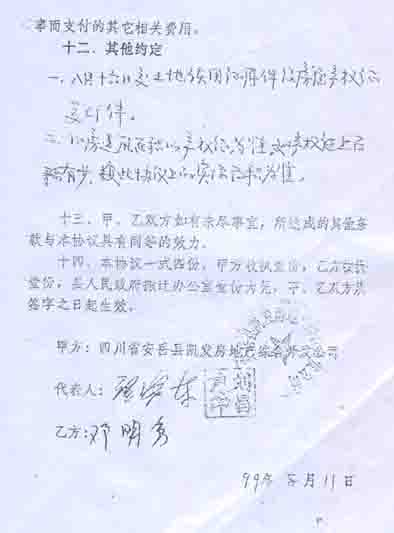 事而支付的其它相关费用。
十二、其他约定
一、八月十六日交土地使用证原件给房屋产权证
复印件。
二、以房屋面积以产权证为准,
积有少, 按此协议上的实际面积为准。
十三、甲、乙双方如有未尽事宜,所达成的其它条
款与本协议具有同等的效力。
十四、本协议一式四份,甲方收执壹份,乙方收执
壹份,县人民政府拆迁办公室壹份,甲、乙双方从
签字之日起生效。
甲方:四川省安岳县凯发房地产综合开发公司
代表人:
乙方:邓明秀
99年 月11日